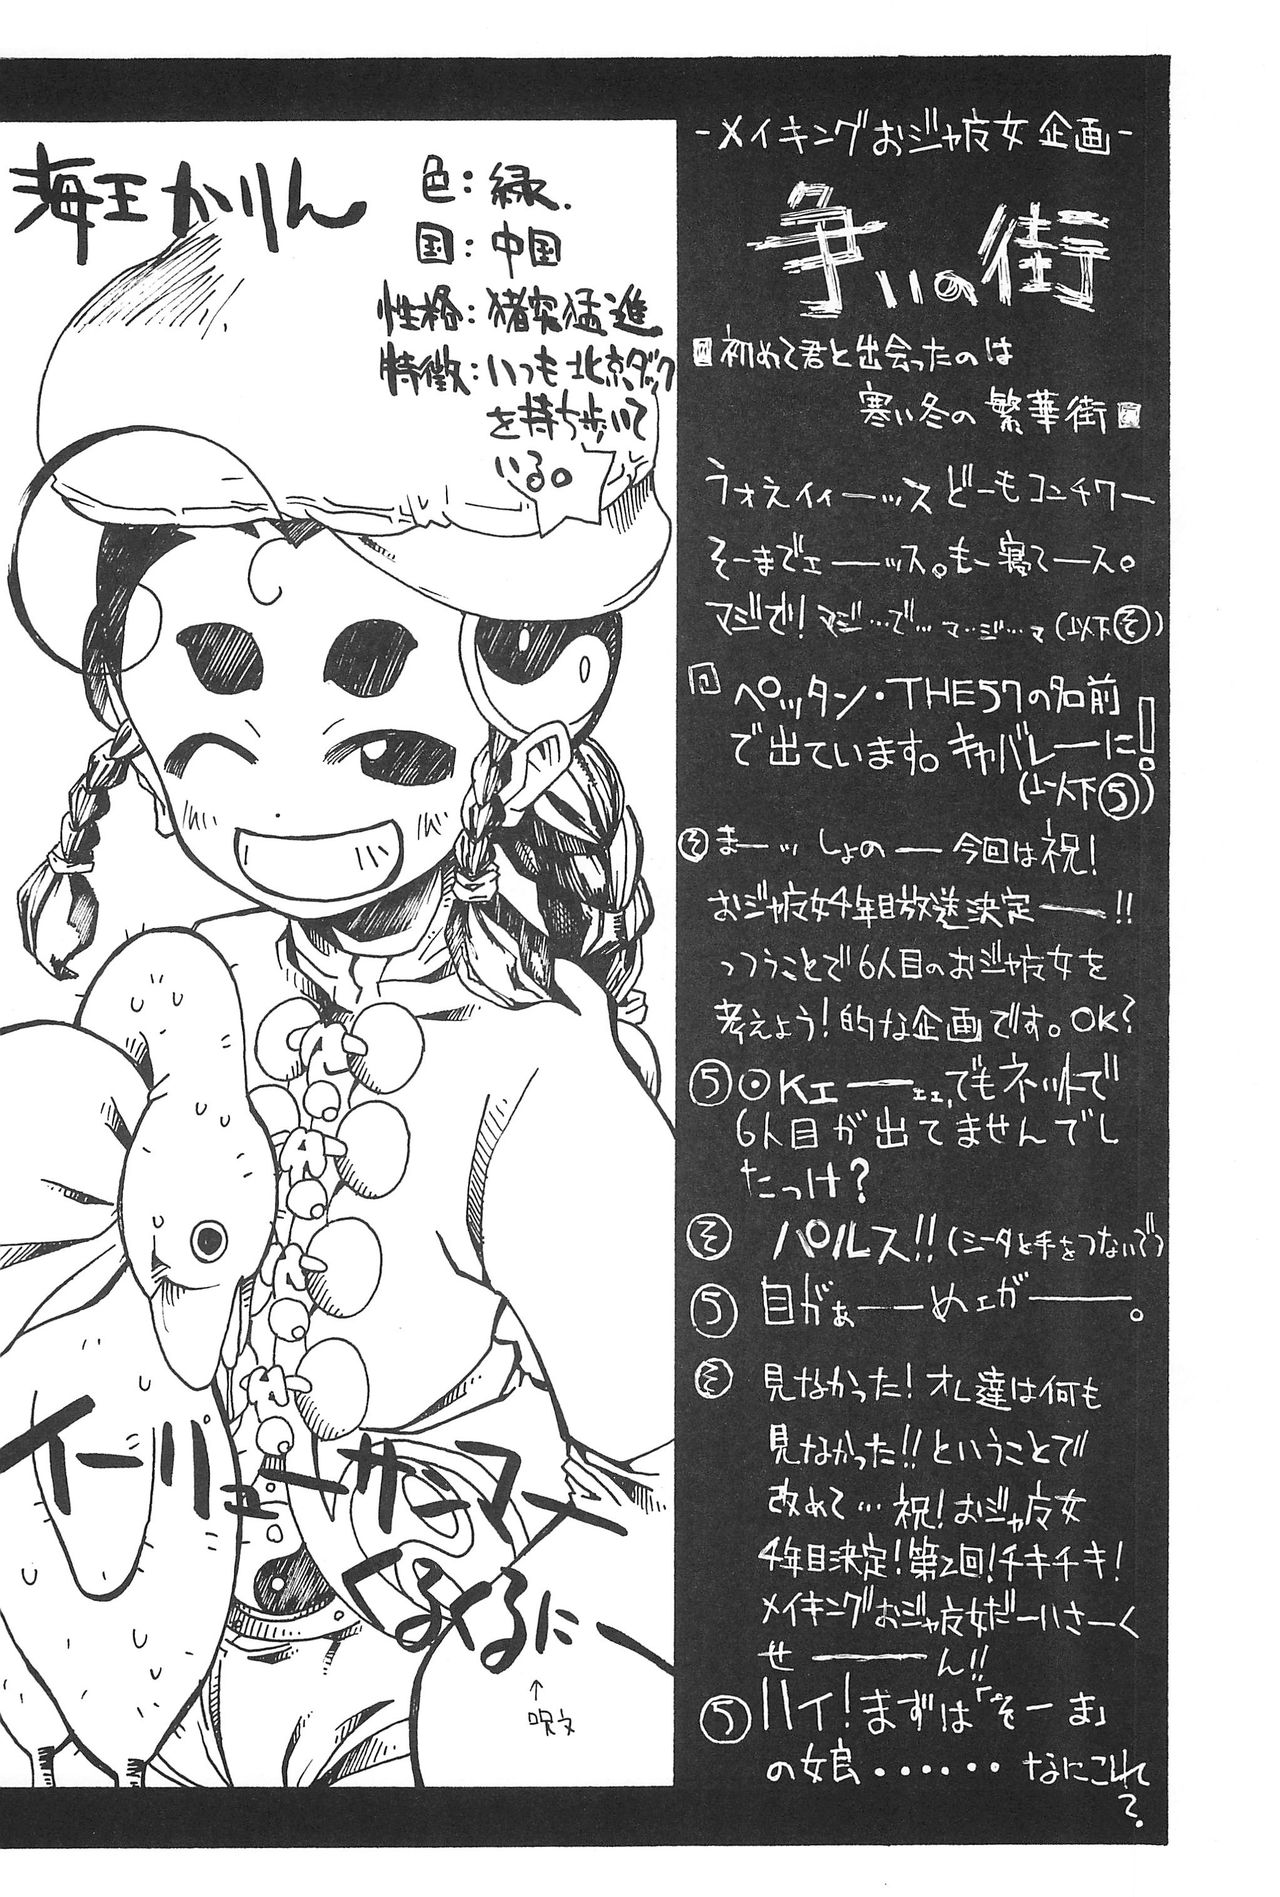 -メイキングおジャ魔女企画-
争いの街
初めて君と出会ったのは
寒い冬の繁華街
うォえィィーーッス どーもコンチワー
そーまでェーーッス。もー寝てース。
マジで!マジ…で…マ…ジ…マ(以下そ)
ペッタン・THE57の名前
で出ています。キャバレーに!
(以下5)
そ まーッしょのー今回は祝!
おジャ魔女4年目放送決定ーー!!
っつうことで6人目のおジャ魔女を
考えよう!的な企画です。OK?
5 OKェーーェェ、でもネットで
6人目が出てませんでし
たっけ?
そ バルス!!(シータと手をつないで)
5 目がぁーーめェガーーー。
そ 見なかった!オレ達は何も
見なかった!!ということで
改めて…祝!おジャ魔女
4年目決定!第2回!チキチキ!
メイキングおジャ魔女だーいさーく
せーーーん!!
5 ハイ!まずは「そーま」
の娘・・・・・・なにこれ
?
海王かりん
色:緑.
国:中国
性格:猪突猛進
特徴:いつも北京ダック
を持ち歩いて
いる。
イーリャーサンスー
くるくるにー
↑
呪文